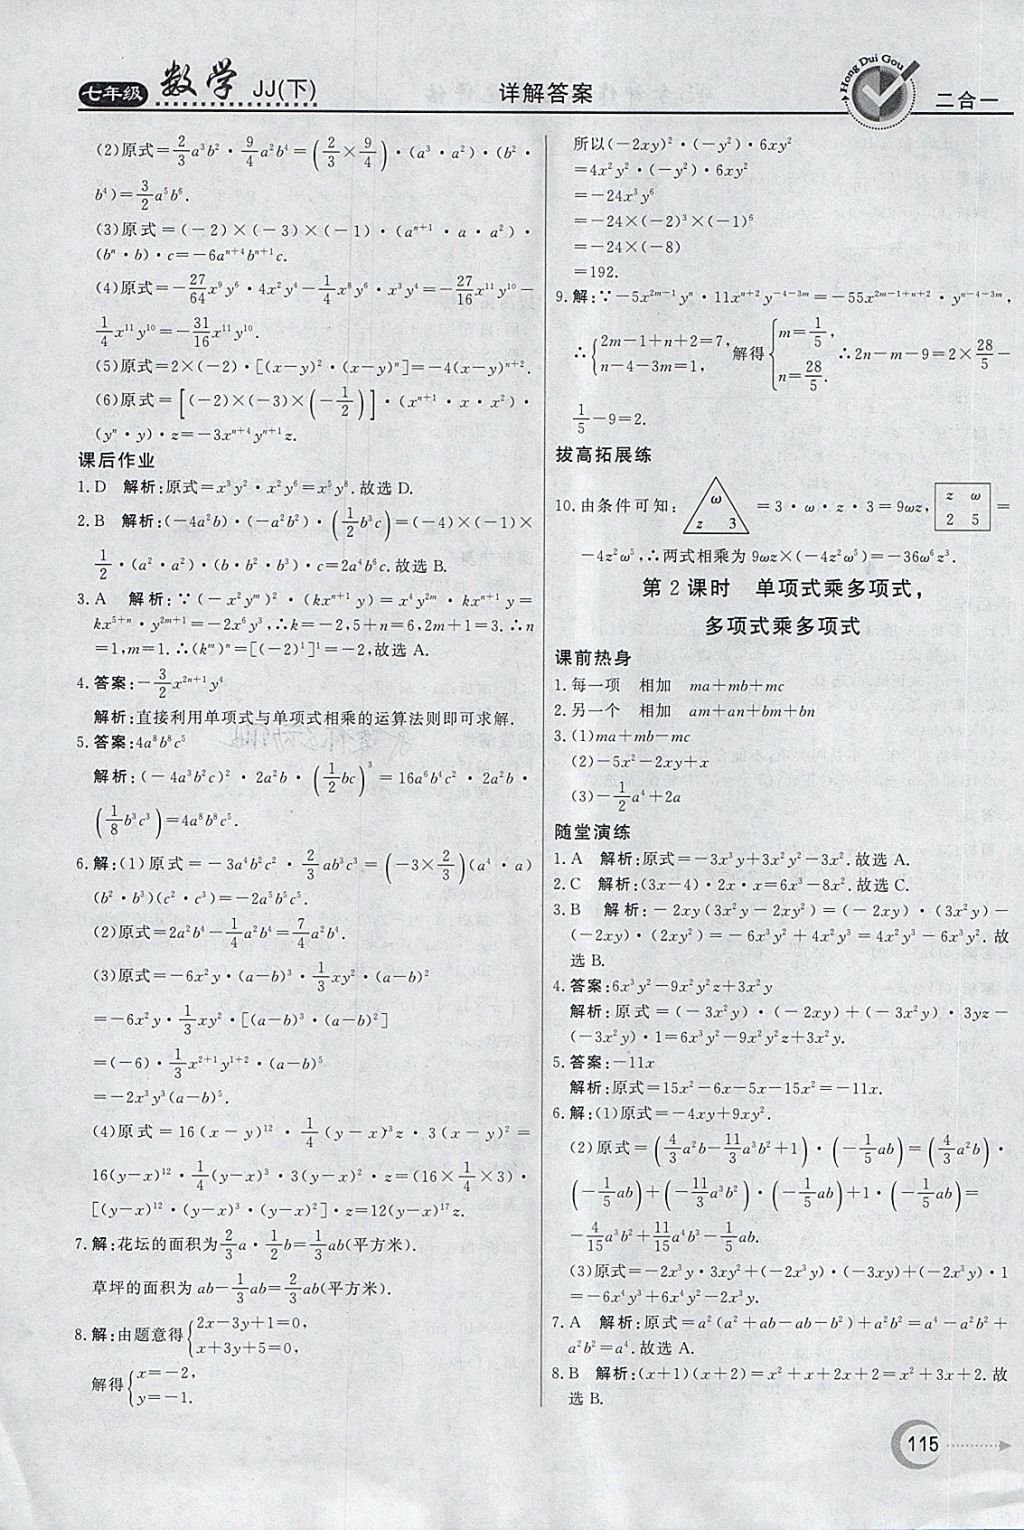 七年级 数学 JJ(下)
详解答案
Hong Dui Gou
二合一
(2)原式=2/3a³b²·9/4a²b⁴=(2/3×9/4)·(a³·a²)·(b²·
b⁴)=3/2a⁵b⁶.
(3)原式=(-2)×(-3)×(-1)·(aⁿ⁺¹·a·a²)·
(bⁿ·b)·c=-6aⁿ⁺⁴bⁿ⁺¹c.
(4)原式=-27/64x⁹y⁶·4x²y⁴-1/4x⁸y⁶·x³y⁴=-27/16x¹¹y¹⁰-
1/4x¹¹y¹⁰=-31/16x¹¹y¹⁰.
(5)原式=2×(-2)·[(x-y)²·(x-y)ⁿ]=-4(x-y)ⁿ⁺².
(6)原式=[(-2)×(-3)×(-1/2)]·(xⁿ⁺¹·x·x²)·
(yⁿ·y)·z=-3xⁿ⁺⁴yⁿ⁺¹z.
课后作业
1.D 解析:原式=x³y²·x²y⁶=x⁵y⁸.故选D.
2.B 解析:(-4a²b)·(-a²b²)·(1/2b³c)=(-4)×(-1)×
1/2·(a²·a²)·(b·b²·b³)·c=2a⁴b⁶c.故选B.
3.A 解析:∵(-x²yᵐ)²·(kxⁿ⁺¹y)=x⁴y²ᵐ·kxⁿ⁺¹y=
kx⁵⁺ⁿ·y²ᵐ⁺¹=-2x⁶y³,∴k=-2,5+n=6,2m+1=3.∴n
=1,m=1.∴(kᵐ)ⁿ=[(-2)¹]¹=-2.故选A.
4.答案:-3/2x²ⁿ⁺¹y⁴
解析:直接利用单项式与单项式相乘的运算法则即可求解.
5.答案:4a⁸b⁸c⁵
解析:(-4a³b²c)²·2a²b·(1/2bc)³=16a⁶b⁴c²·2a²b·
(1/8b³c³)=4a⁸b⁸c⁵.
6.解:(1)原式=-3a⁴b²c²·2/3ab³c³=(-3×2/3)(a⁴·a)
(b²·b³)(c²·c³)=-2a⁵b⁵c⁵.
(2)原式=2a²b⁴-1/4a²b⁴=7/4a²b⁴.
(3)原式=-6x²y·(a-b)³·1/3xy²·(a-b)²
=-6x²y·1/3xy²·[(a-b)³·(a-b)²]
=(-6)·1/3x²⁺¹y¹⁺²·(a-b)⁵
=-2x³y³(a-b)⁵.
(4)原式=16(x-y)¹²·1/4(y-x)³z·3(x-y)²=
16(y-x)¹²·1/4(y-x)³·3(y-x)²·z=(16×1/4×3)·
[(y-x)¹²·(y-x)³·(y-x)²]·z=12(y-x)¹⁷z.
7.解:花坛的面积为2/3a·1/2b=1/3ab(平方米).
草坪的面积为ab-1/3ab=2/3ab(平方米).
8.解:由题意得{2x-3y+1=0,
x+3y+5=0,
解得{x=-2,
y=-1.
所以(-2xy)²·(-y²)·6xy²
=4x²y²·(-y²)·6xy²
=-24x³y⁶
=-24×(-2)³×(-1)⁶
=-24×(-8)
=192.
9.解:∵-5x²ᵐ⁻¹yⁿ·11xⁿ⁺²y⁻⁴⁻³ᵐ=-55x²ᵐ⁻¹⁺ⁿ⁺²·yⁿ⁻⁴⁻³ᵐ,
∴{2m-1+n+2=7, n-4-3m=1, 解得{m=1/5, n=28/5. ∴2n-m-9=2×28/5-
1/5-9=2.
拔高拓展练
10.由条件可知: ω z 3 =3·ω·z·3=9ωz, z ω 2 5 =
-4z²ω⁵,∴两式相乘为9ωz×(-4z²ω⁵)=-36ω⁶z³.
第2课时 单项式乘多项式,
多项式乘多项式
课前热身
1.每一项 相加 ma+mb+mc
2.另一个 相加 am+an+bm+bn
3.(1)ma+mb-mc
(2)-5x²-2xy+x
(3)-1/2a⁴+2a
随堂演练
1.A 解析:原式=-3x³y+3x²y²-3x².故选A.
2.C 解析:(3x-4)·2x·x=6x³-8x².故选C.
3.B 解析:-2xy(3x²y-2xy²)=(-2xy)·(3x²y)-
(-2xy)·(2xy²)=-6x³y²+4x²y³=4x²y³-6x³y².故
选B.
4.答案:6x³y²-9x²y²z+3x²y
解析:原式=(-3x²y)·(-2xy)+(-3x²y)·3yz-
(-3x²y)·1=6x³y²-9x²y²z+3x²y.
5.答案:-11x
解析:原式=15x²-6x-5x-15x²=-11x.
6.解:(1)原式=-4xy+9xy².
(2)原式=(4/3a²b-11/3a³b²+1)·(-1/5ab)=(4/3a²b)·
(-1/5ab)+(-11/3a³b²)·(-1/5ab)+1·(-1/5ab)=
-4/15a³b²+11/15a⁴b³-1/5ab.
(3)原式=-2x³y·3xy²+(-2x³y)·(-3xy)+(-2x³y)·1
=-6x⁴y³+6x⁴y²-2x³y.
7.A 解析:原式=a²(a²+ab-ab-b²)+a²b²=a⁴-a²b²+
a²b²=a⁴.故选A.
8.B 解析:(x+1)(x+2)=x²+x+2x+2=x²+3x+2.故
选B.
115